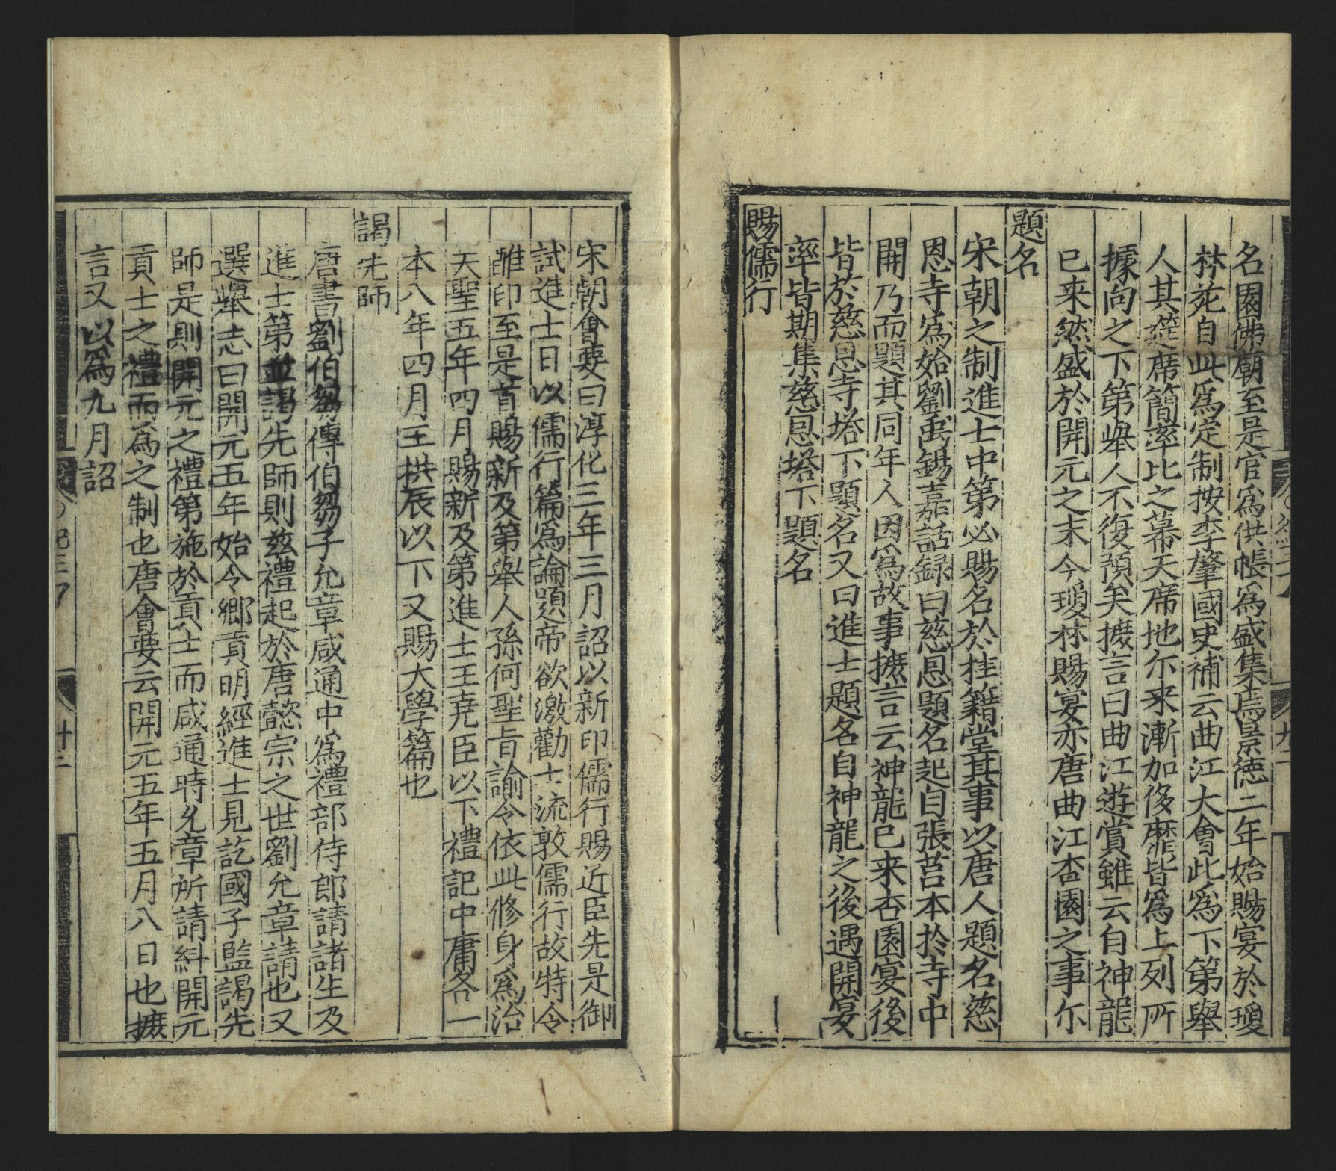 名園佛廟至是官爲供帳爲盛集焉景德二年始賜宴於瓊
林苑自此爲定制按李肇國史補云曲江大會此爲下第舉
人其筵席簡率比之幕天席地尓来漸加侈靡皆爲上列所
據向之下第舉人不復預矣摭言曰曲江遊賞雖云自神龍
已来然盛於開元之末今瓊林賜宴亦唐曲江杏園之事尓
題名
宋朝之制進士中第必賜名於桂籍堂其事以唐人題名慈
恩寺爲始劉禹錫嘉話録曰慈恩題名起自張莒本於寺中
閒乃而題其同年人因爲故事摭言云神龍已来杏園宴後
皆於慈恩寺塔下題名又曰進士題名自神龍之後過關宴
率皆期集慈恩塔下題名
賜儒行
宋朝會要曰淳化三年三月詔以新印儒行賜近臣先是御
試進士日以儒行篇爲論題帝欲激勸士流敦儒行故特令
雕印至是首賜新及第舉人孫何聖旨諭令依此修身爲治
天聖五年四月賜新及第進士王堯臣以下禮記中庸各一
本八年四月王拱辰以下又賜大學篇也
謁先師
唐書劉伯芻傳伯芻子允章咸通中爲禮部侍郎請諸生及
進士第並謁先師則兹禮起於唐懿宗之世劉允章請也又
選舉志曰開元五年始令鄉貢明經進士見訖國子監謁先
師是則開元之禮第施於貢士而咸通時允章所請糾開元
貢士之禮而爲之制也唐會要云開元五年五月八日也摭
言又以爲九月詔